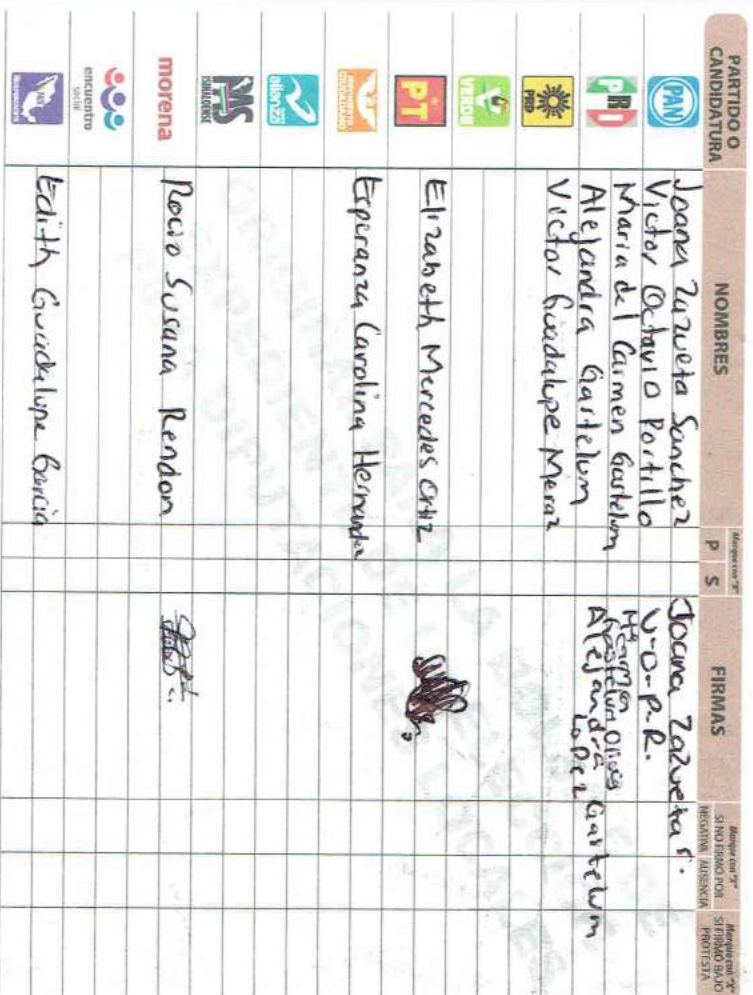 PARTIDO O
CANDIDATURA
NOMBRES
Marque con "X"
P S
FIRMAS
Marque con "X"
SI NO FIRMÓ POR
NEGATIVA AUSENCIA
Marque con "X"
SI FIRMÓ BAJO
PROTESTA
PAN
Joana Zazueta Sanchez
Joana Zazueta S.
Victor Octavio Portillo
V-O-P-R.
PRI
Maria del Carmen Gastelum
Mª Carmen
Gastelum
Alejandra Gastelum
Alejandra Gastelum
Lopez
PRD
Victor Guadalupe Meraz
VERDE
PT
Elizabeth Mercedes Ortiz
MOVIMIENTO
CIUDADANO
Esperanza Carolina Hernandez
alianza
PAS
SINALOENSE
morena
Rocio Susana Rendon
encuentro
social
MÁS
Edith Guadalupe Garcia
ORIGINAL PARA LA BOLSA DE
EXPEDIENTE DE LA ELECCIÓN
PARA DIPUTACIONES LOCALES